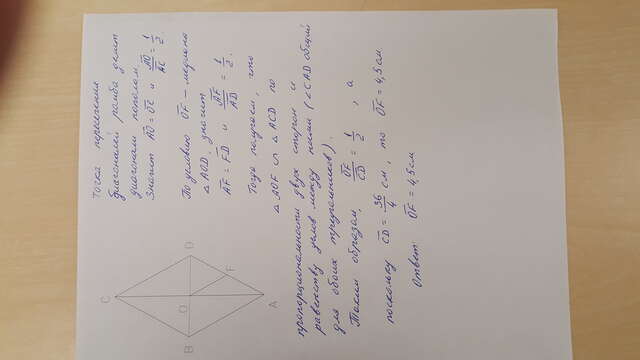 Точка пересечения
диагоналей ромба делит
диагонали пополам
Значит AO = OC и AO/AC = 1/2
По условию OF – медиана
△ AOD, значит
AF = FD и AF/AD = 1/2.
Тогда получаем, что
△ AOF ∽ △ ACD по
пропорциональности двух сторон и
равенству углов между ними (∠CAD общий
для обоих треугольников).
Таким образом, OF/CD = 1/2, а
поскольку CD = 36/4 см, то OF = 4,5 см
Ответ OF = 4,5 см
C
B O D
F
A